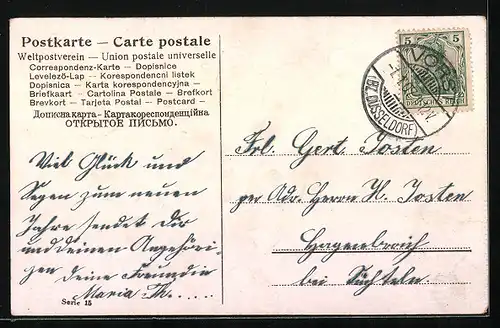 Postkarte — Carte postale
Weltpostverein — Union postale universelle
Correspondenz-Karte - Dopisnice
Levelező-Lap - Korespondencni listek
Dopisnica - Karta korespondencyjna -
Briefkaart - Cartolina Postale - Brefkort
Brevkort - Tarjeta Postal - Postcard -
Дописна карта - Картакореспонденційна
ОТКРЫТОЕ ПИСЬМО.
Viel Glück und
Segen zum neuen
Jahre sendet dir
und deinen Angehöri-
gen deine Freundin
Maria Th......
Serie 15
5 5
DEUTSCHES REICH
VORST
(BZ. DÜSSELDORF)
Frl. Gert. Josten
per Adr. Herrn H. Josten
Hagenbroich
bei Süchteln.